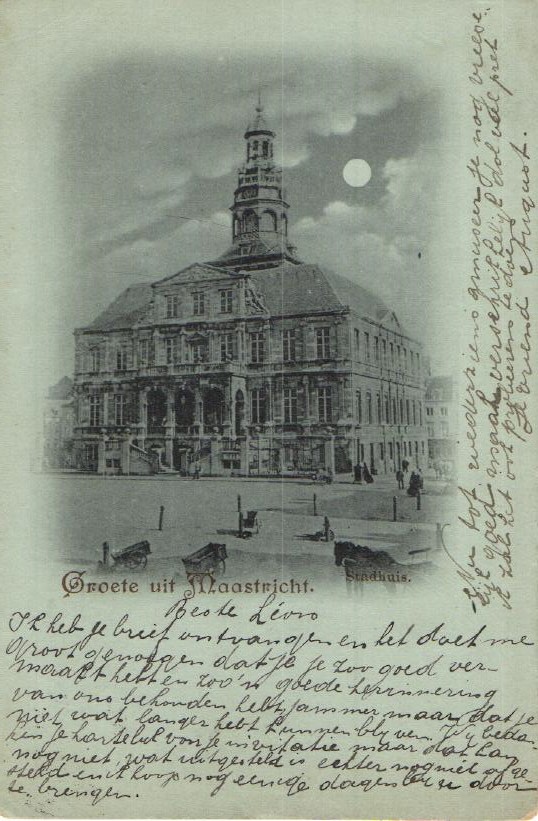 Groete uit Maastricht.
Stadhuis.
Beste Léon
Ik heb je brief ontvangen en het doet me
groot genoegen dat je je zoo goed ver-
maakt hebt en zoo'n goede herinnering
van ons behouden hebt jammer maar dat je
niet wat langer hebt kunnen blyven. Wy beda-
ken je hartelyk voor je invitatie maar dat kan
nog niet, wat uitgesteld is echter nog niet afge-
steld en ik hoop nog eenige dagen by u door
te brengen.
Nu tot wederziens amuseer je nog
goed maar
ik zal het ook probeeren te doen
vriend August.